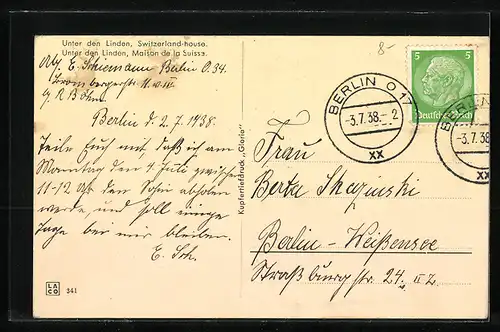 Unter den Linden, Switzerland-house.
Unter den Linden, Maison de la Suisse.
Abs. E. Schiemann Berlin O.34.
Berlin d. 2.7.1938.
Teile Euch mit daß ich am
Montag den 4. Juli zwischen
11-12 Uhr den abholen
werde und soll einige
Tage bei mir bleiben.
E. Sch.
LACO 341
Kupfertiefdruck „Gloria"
8-
5 5
Deutsches Reich
BERLIN O 17
-3.7.38.- 2
xx
BERLIN
-3.7.38
xx
Frau
Berta
Berlin-Weißensee
Straßburgstr. 24